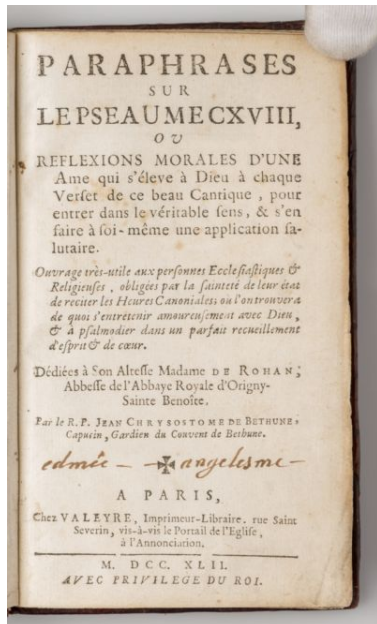 PARAPHRASES
SUR
LE PSEAUME CXVIII,
OU
REFLEXIONS MORALES D'UNE
Ame qui s'éleve à Dieu à chaque
Verset de ce beau Cantique, pour
entrer dans le véritable sens, & s'en
faire à soi-même une application sa-
lutaire.
Ouvrage très-utile aux personnes Ecclesiastiques &
Religieuses, obligées par la sainteté de leur état
de reciter les Heures Canoniales; où l'on trouvera
de quoi s'entretenir amoureusement avec Dieu,
& à psalmodier dans un parfait recueillement
d'esprit & de cœur.
Dédiées à Son Altesse Madame DE ROHAN,
Abbesse de l'Abbaye Royale d'Origny-
Sainte Benoîte.
Par le R. P. JEAN CHRYSOSTOME DE BETHUNE,
Capucin, Gardien du Convent de Bethune.
edmée – angelesme –
A PARIS,
Chez VALEYRE, Imprimeur-Libraire, rue Saint
Severin, vis-à-vis le Portail de l'Eglise,
à l'Annonciation.
M. DCC. XLII.
AVEC PRIVILEGE DU ROI.